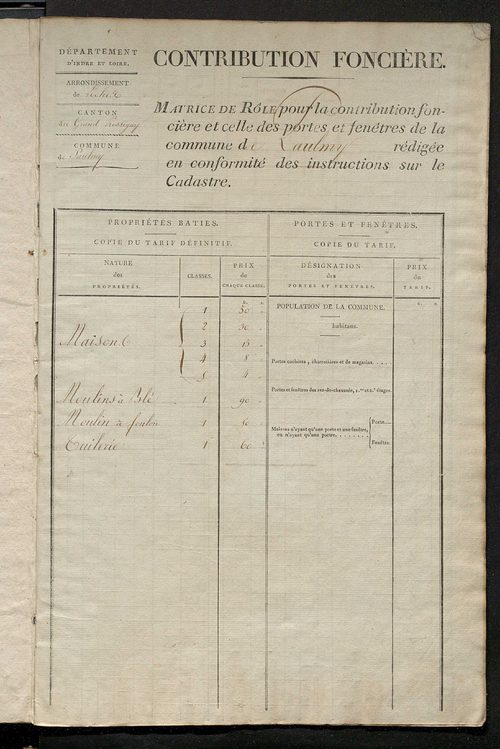 DÉPARTEMENT
D'INDRE ET LOIRE.
ARRONDISSEMENT
de
CANTON
du Grand Pressigny
COMMUNE
de Paulmy
CONTRIBUTION FONCIÈRE.
MATRICE DE RÔLE pour la contribution fon-
cière et celle des portes et fenêtres de la
commune de Paulmy rédigée
en conformité des instructions sur le
Cadastre.
PROPRIÉTÉS BATIES.
COPIE DU TARIF DÉFINITIF.
NATURE
des
PROPRIÉTÉS.
CLASSES.
PRIX
de
CHAQUE CLASSE.
PORTES ET FENÊTRES.
COPIE DU TARIF.
DÉSIGNATION
des
PORTES ET FENÊTRES.
PRIX
du
TARIF.
Maisons
1 50
2 30
3 15
4 8
5 4
Moulins à Blé 1 90
Moulin à foulon 1 50
Tuilerie 1 60
POPULATION DE LA COMMUNE.
habitans.
Portes cochères, charretières et de magasins. . . . .
Portes et fenêtres des rez-de-chaussée, 1.er et 2.e étages.
Maisons n'ayant qu'une porte et une fenêtre,
ou n'ayant qu'une porte. . . . . . . .
Porte...
Fenêtre.